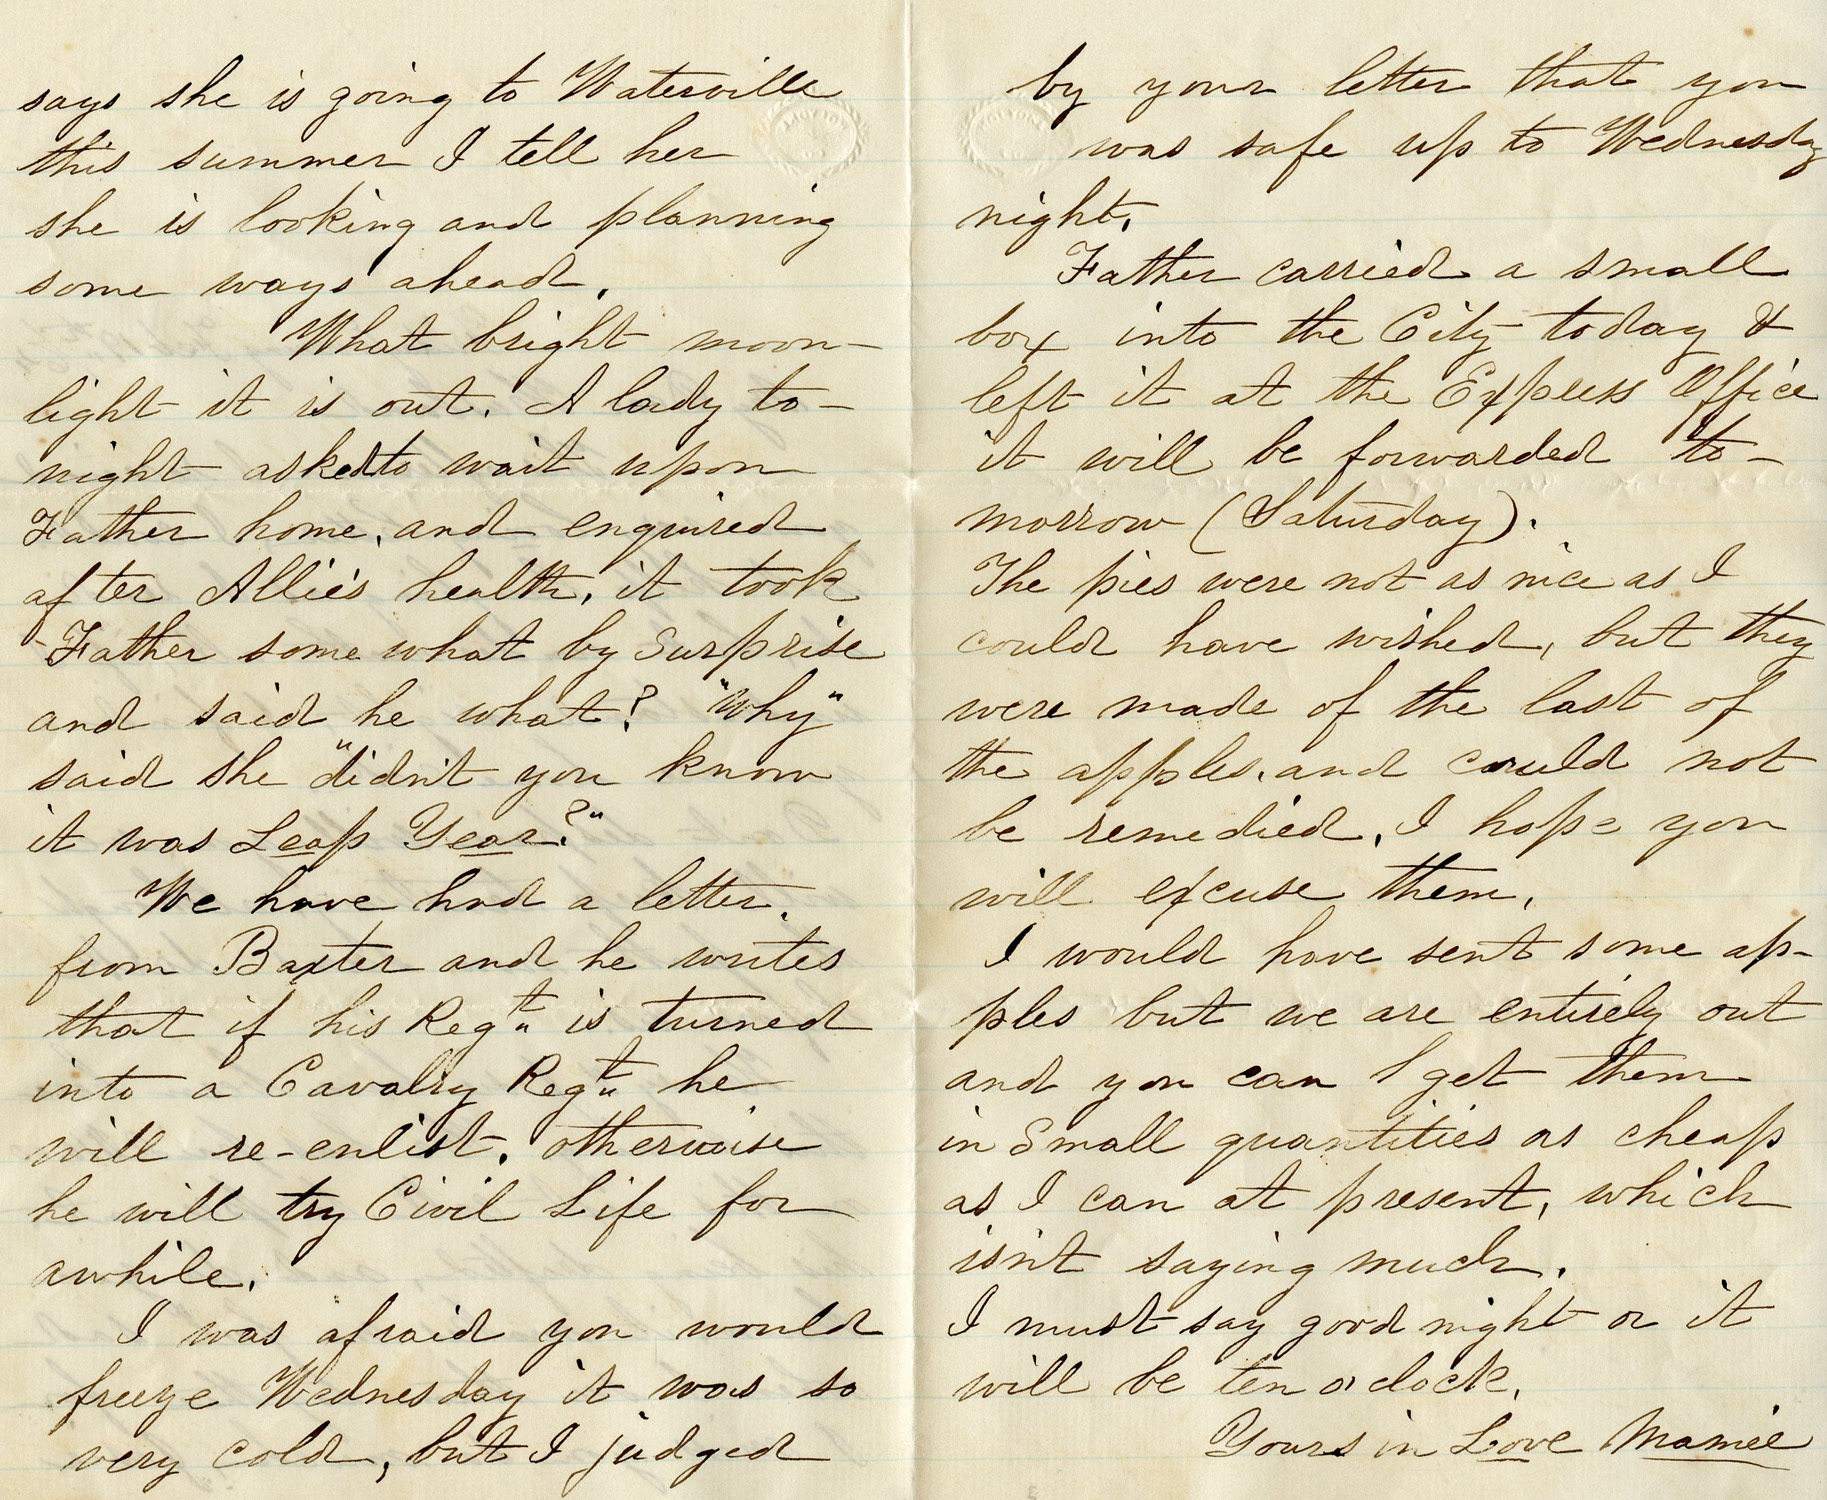 says she is going to Waterville
this summer I tell her
she is looking and planning
some ways ahead.
What bright moon-
light it is out. A lady to-
night asked to wait upon
Father home, and enquired
after Allie's health, it took
Father some what by surprise
and said he what? "Why"
said she "didn't you know
it was Leap Year?"
We have had a letter
from Baxter and he writes
that if his Regt. is turned
into a Cavalry Regt. he
will re-enlist, otherwise
he will try Civil Life for
awhile.
I was afraid you would
freeze Wednesday it was so
very cold, but I judged
by your letter that you
was safe up to Wednesday
night.
Father carried a small
box into the City today &
left it at the Express Office
it will be forwarded to-
morrow (Saturday).
The pies were not as nice as I
could have wished, but they
were made of the last of
the apples, and could not
be remedied, I hope you
will excuse them.
I would have sent some ap-
ples but we are entirely out
and you can get them
in small quantities as cheap
as I can at present, which
isn't saying much.
I must say good night or it
will be ten o'clock.
Yours in Love Mamie